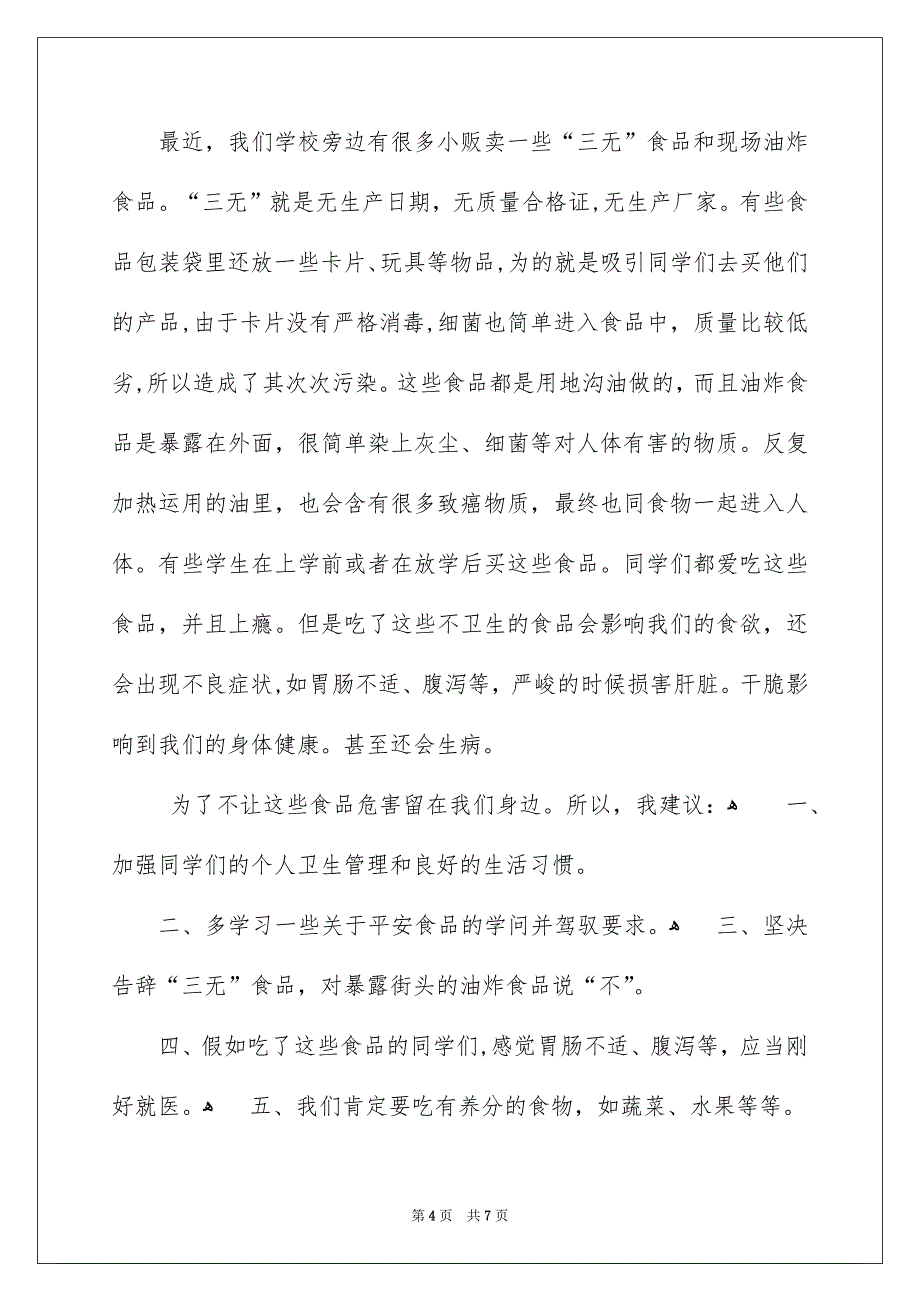 最近，我们学校旁边有很多小贩卖一些“三无”食品和现场油炸
食品。“三无”就是无生产日期，无质量合格证,无生产厂家。有些食
品包装袋里还放一些卡片、玩具等物品,为的就是吸引同学们去买他们
的产品,由于卡片没有严格消毒,细菌也简单进入食品中，质量比较低
劣,所以造成了其次次污染。这些食品都是用地沟油做的，而且油炸食
品是暴露在外面，很简单染上灰尘、细菌等对人体有害的物质。反复
加热运用的油里，也会含有很多致癌物质，最终也同食物一起进入人
体。有些学生在上学前或者在放学后买这些食品。同学们都爱吃这些
食品，并且上瘾。但是吃了这些不卫生的食品会影响我们的食欲，还
会出现不良症状,如胃肠不适、腹泻等，严峻的时候损害肝脏。干脆影
响到我们的身体健康。甚至还会生病。
为了不让这些食品危害留在我们身边。所以，我建议：ﻫ 一、
加强同学们的个人卫生管理和良好的生活习惯。
二、多学习一些关于平安食品的学问并驾驭要求。ﻫ 三、坚决
告辞“三无”食品，对暴露街头的油炸食品说“不”。
四、假如吃了这些食品的同学们,感觉胃肠不适、腹泻等，应当刚
好就医。ﻫ 五、我们肯定要吃有养分的食物，如蔬菜、水果等等。
第 4 页 共 7 页